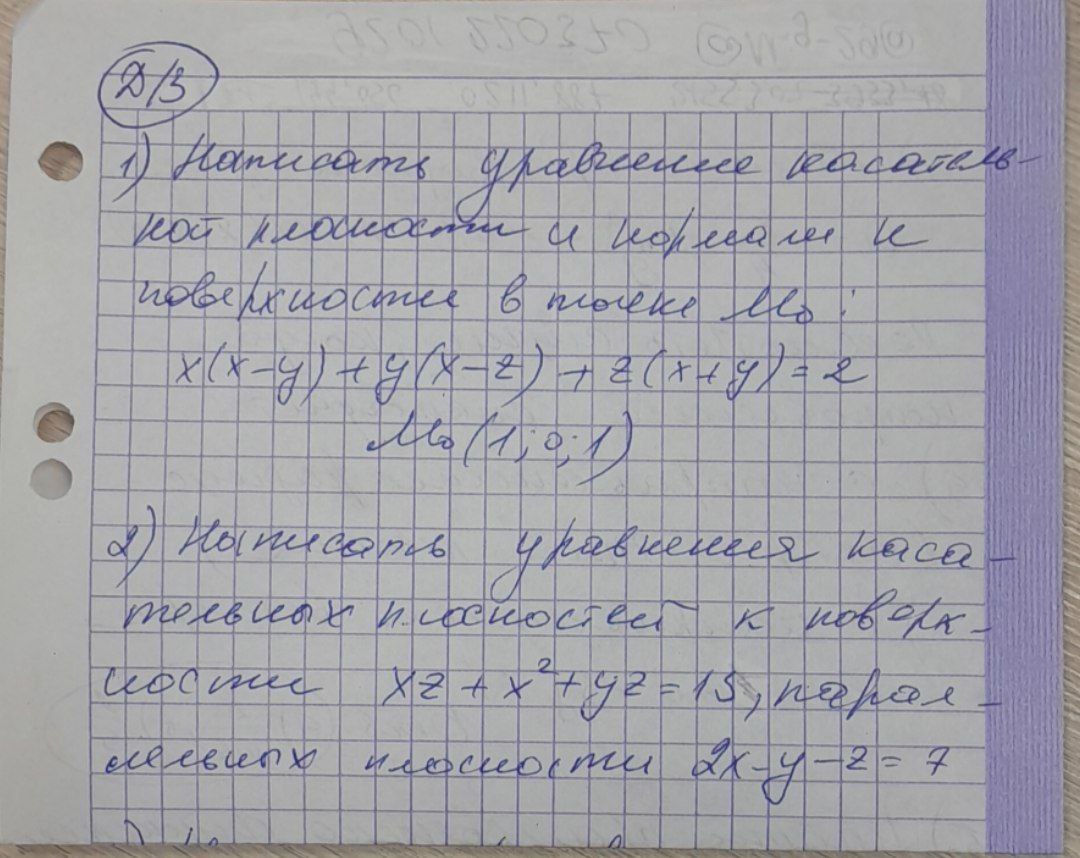 Д/З
1) Написать уравнение касатель-
ной плоскости и нормали к
поверхности в точке M₀:
x(x-y)+y(x-z)+z(x+y)=2
M₀(1;0;1)
2) Написать уравнения каса-
тельных плоскостей к поверх-
ности xz+x²+yz=15, парал-
лельных плоскости 2x-y-z=7